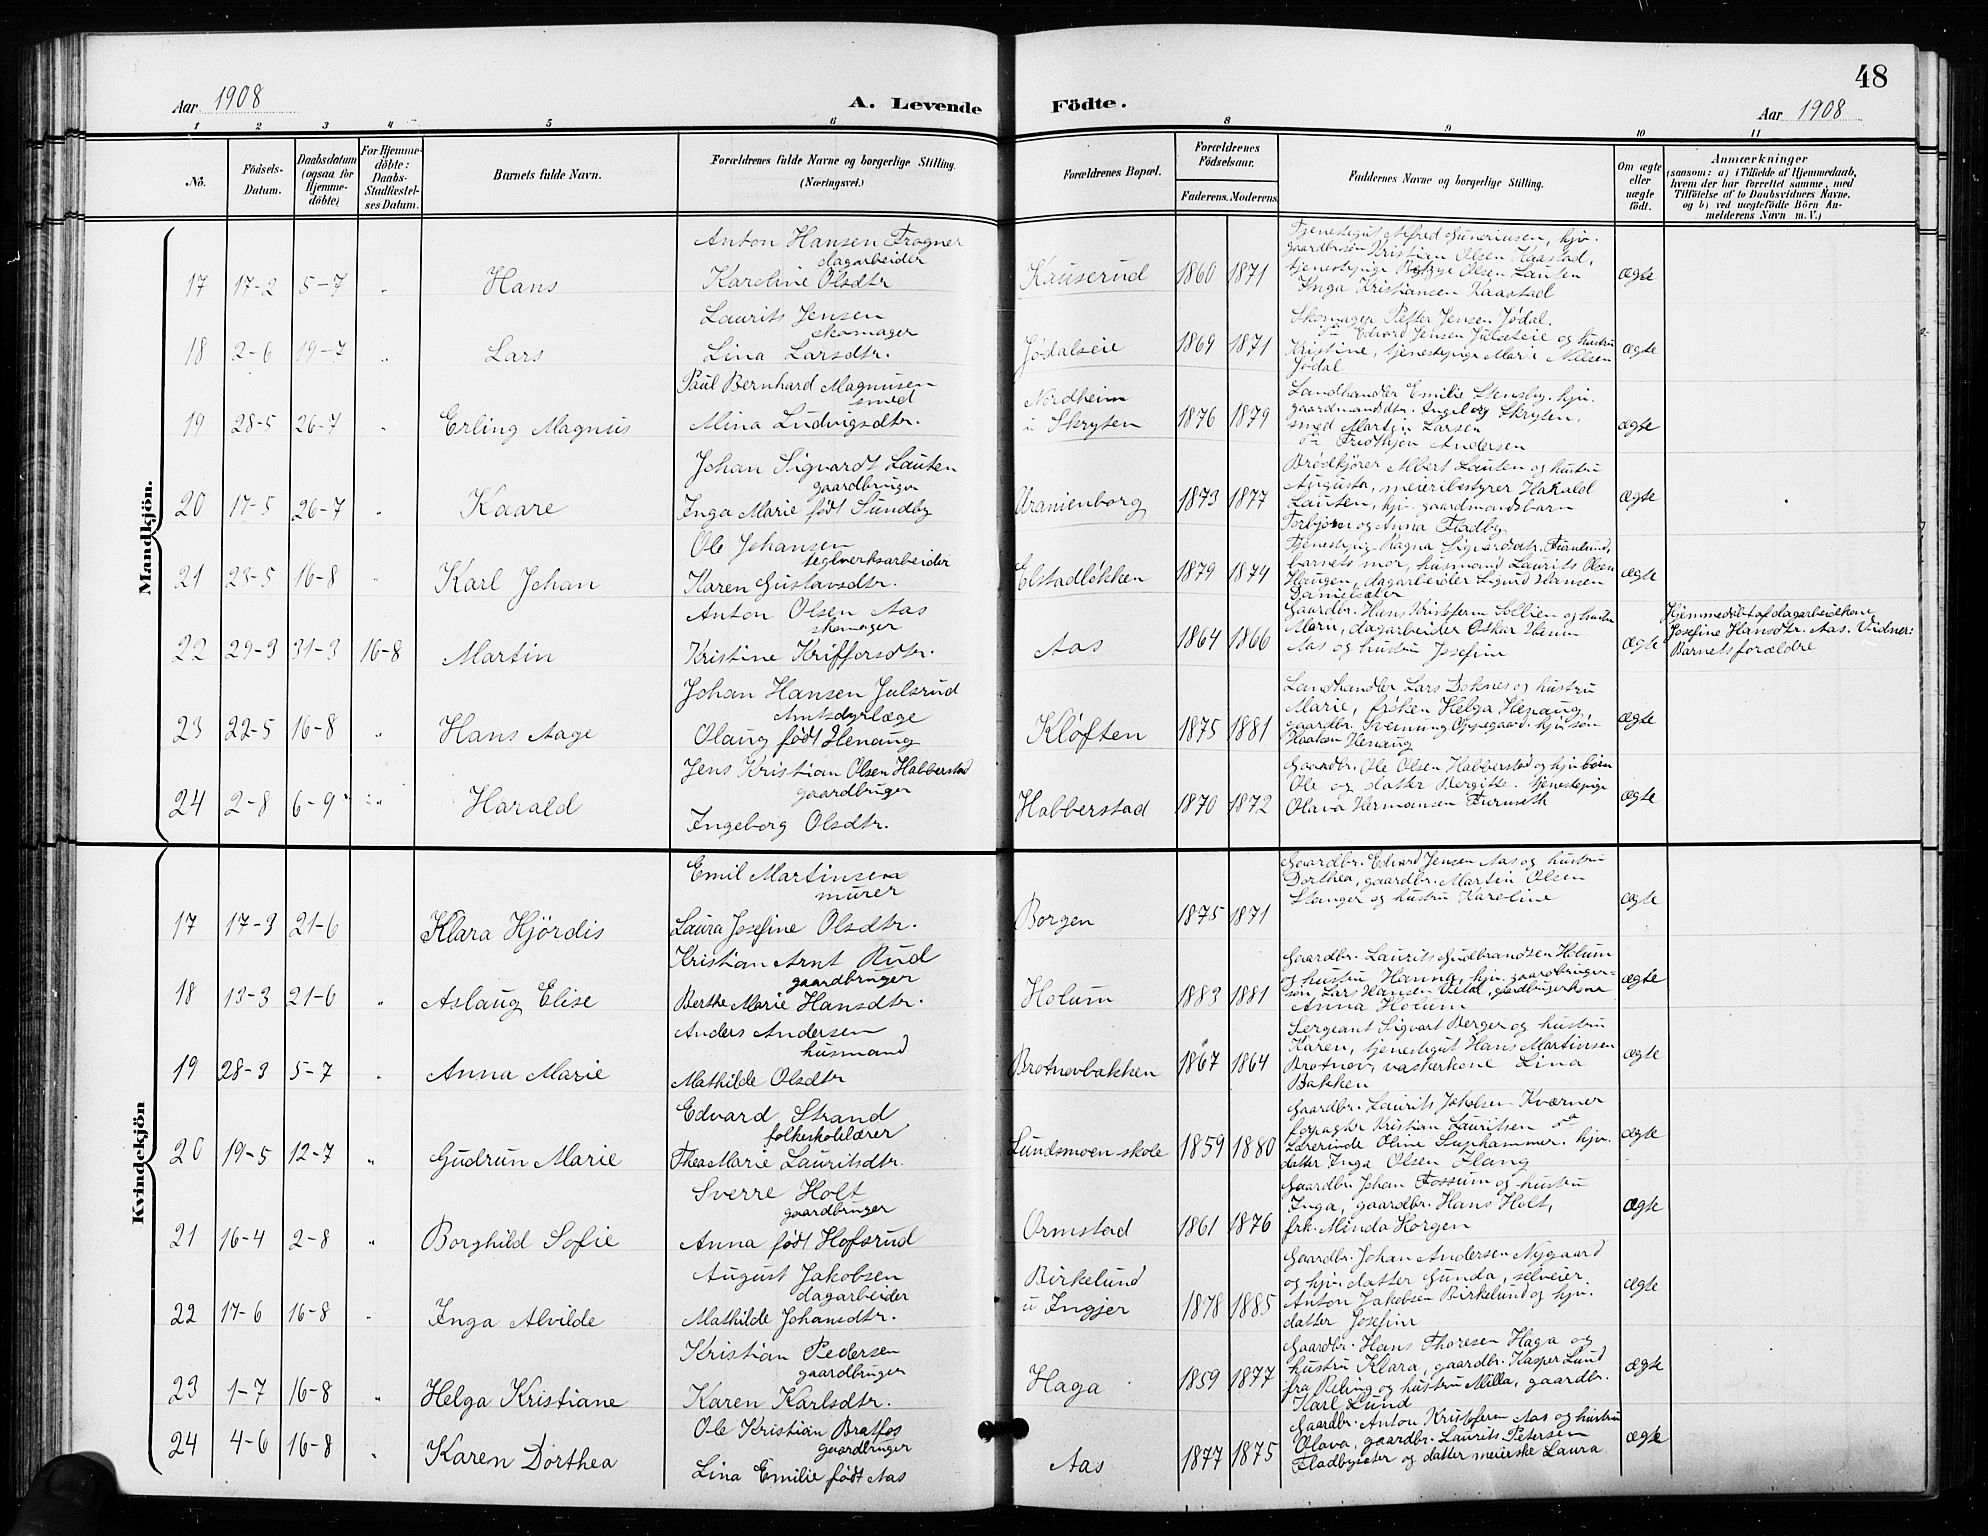 48
Aar 1908 A. Levende Födte. Aar 1908
1 2 3 4 5 6 8 9 10 11
No.
Födsels-Datum.
Daabsdatum (ogsaa for Hjemmedöbte)
For Hjemmedöbte: Daabs-Stadfæstelses Datum.
Barnets fulde Navn.
Forældrenes fulde Navne og borgerlige Stilling. (Næringsvei.)
Forældrenes Bopæl.
Forældrenes Födselsaar.
Faderens. Moderens.
Faddernes Navne og borgerlige Stilling.
Om ægte eller uægte födt.
Anmærkninger
(saasom: a) i Tilfælde af Hjemmedaab, hvem der har forrettet samme, med Tilföielse af to Daabsvidners Navne, og b) ved uægtefödte Börn Anmelderens Navn m. V.)
Mandkjön.
17 17-2 5-7 " Hans
Anton Hansen Frogner
dagarbeider
Karoline Olsdtr
Kauserud 1860 1871
Tjenestegut Alfred Gunerinsen, hjv.
gaardbrsøn Kristian Olsen Kaastad,
tjenestepige Olsen Lauten
Inga Kristiansen Kaastad
ægte
18 2-6 19-7 " Lars
Laurits Jensen
skomager
Lina Larsdtr.
Jødalseie 1869 1871
Skomager Petter Jensen Jødal.
Edvard Jensen Julseie og hustru
Kristine, tjenestepige Marie Nilsen
Jødal
ægte
19 28-5 26-7 " Erling Magnus
Paul Bernhard Magnusen
smed
Mina Ludvigsdtr.
Nordheim
u Skryten 1876 1879
Landhandler Emilie Stensby. hjv.
gaardmanddtr. Ingeborg Skryten,
smed Martin Larsen
Fridthjov Andersen
ægte
20 17-5 26-7 " Kaare
Johan Sigvardt Lauten
gaardbruger
Inga Marie født Sundby
Uranienborg 1873 1877
Brødkjører Albert Lauten og hustru
Augusta, meieribestyrer Harald
Lauten, hjv. gaardmandsbarn
Torbjørn og Anna Fladby
ægte
21 23-5 16-8 " Karl Johan
Ole Johansen
teglverksarbeider
Karen Gustavsdtr.
Elstadløkken 1879 1874
Tjenestepig Ragna Sigvardsdtr. Furulund,
barnets mor, husmand Laurits Olsen
Haugen, dagarbeider Sigurd Hansen
Danielsæter
ægte
22 29-3 31-3 16-8 Martin
Anton Olsen Aas
skomager
Kristine Kriffersdtr.
Aas 1864 1866
Gaardbr. Hans Kristofersen og hustru
Marie, dagarbeider Oskar
Aas og hustru Josefine
ægte
Hjemmedøbt af dagarbeiderkone
Josefine Hansdtr. Aas. Vidner:
Barnets forældre
23 22-5 16-8 " Hans Aage
Johan Hansen Julsrud
Amtsdyrlæge
Olaug født Henaug
Kløften 1875 1881
Landhandler Lars Døknes og hustru
Marie, frøken Helga Henaug
gaardbr. Svenning Oppegaard. hjv. søn
Haakon Henaug
ægte
24 2-8 6-9 " Harald
Jens Kristian Olsen Habberstad
gaardbruger
Ingeborg Olsdtr.
Habberstad 1870 1872
Gaardbr. Ole Olsen Habberstad og hjv børn
Ole og datter Bergitte. tjenestepige
Olava Hermansen Furuseth
ægte
Kvindekjön
17 17-3 21-6 Klara Hjördis
Emil Martinsen
murer
Laura Josefine Olsdtr.
Borgen 1875 1871
Gaardbr. Edvard Jensen Aas og hustru
Dorthea, gaardbr. Martin Olsen
Stanger og hustru Karoline
ægte
18 13-3 21-6 " Aslaug Elise
Kristian Arnt Rud
gaardbruger
Berthe Marie Hansdtr.
Holum 1883 1881
Gaardbr. Laurits Gudbrandsen Holum
og hustru Hanna, hjv. gaardbruger-
søn Lars Hansen, gaardbrugerkone
Anna Holum
ægte
19 28-3 5-7 " Anna Marie
Anders Andersen
husmand
Mathilde Olsdtr
Brotnovbakken 1867 1864
Sergeant Sigvart Berger og hustru
Karen, tjenestegut Hans Martinsen
Brotnov, vaskerkone Lina
Bakken
ægte
20 19-5 12-7 " Gudrun Marie
Edvard Strand
folkeskolelærer
Thea Marie Lauritsdtr.
Lundsmoen skole 1859 1880
Gaardbr. Laurits Jakobsen Kværner
forpagter Kristian Lauritsen
Lærerinde Oline Suphammer. hjv.
datter Inga Olsen Flang
ægte
21 16-4 2-8 " Borghild Sofie
Sverre Holt
gaardbruger
Anna født Hofsrud
Ormstad 1861 1876
Gaardbr. Johan Fossum og hustru
Inga, gaardbr. Hans Holt,
frk. Minda Horgen
ægte
22 17-6 16-8 " Inga Alvilde
August Jakobsen
dagarbeider
Mathilde Johansdtr.
Birkelund
u Ingjer 1878 1885
Gaardbr. Johan Andersen Nygaard
og hjv. datter Gunda, selveier
Anton Jakobsen Birkelund og hjv.
datter Josefine
ægte
23 1-7 16-8 " Helga Kristiane
Kristian Pedersen
gaardbruger
Karen Karlsdtr.
Haga 1859 1877
Gaardbr. Hans Thoresen Haga og
hustru Klara, gaardbr. Kasper Lund
fra Reling og hustru Milla, gaardbr.
Karl Lund
ægte
24 4-6 16-8 " Karen Dorthea
Ole Kristian Bratfos
gaardbruger
Lina Emilie født Aas
Aas 1877 1875
Gaardbr. Anton Kristofersen Aas og hustru
Olava, gaardbr. Laurits Petersen
Fladbysæter og datter meierske Laura
ægte